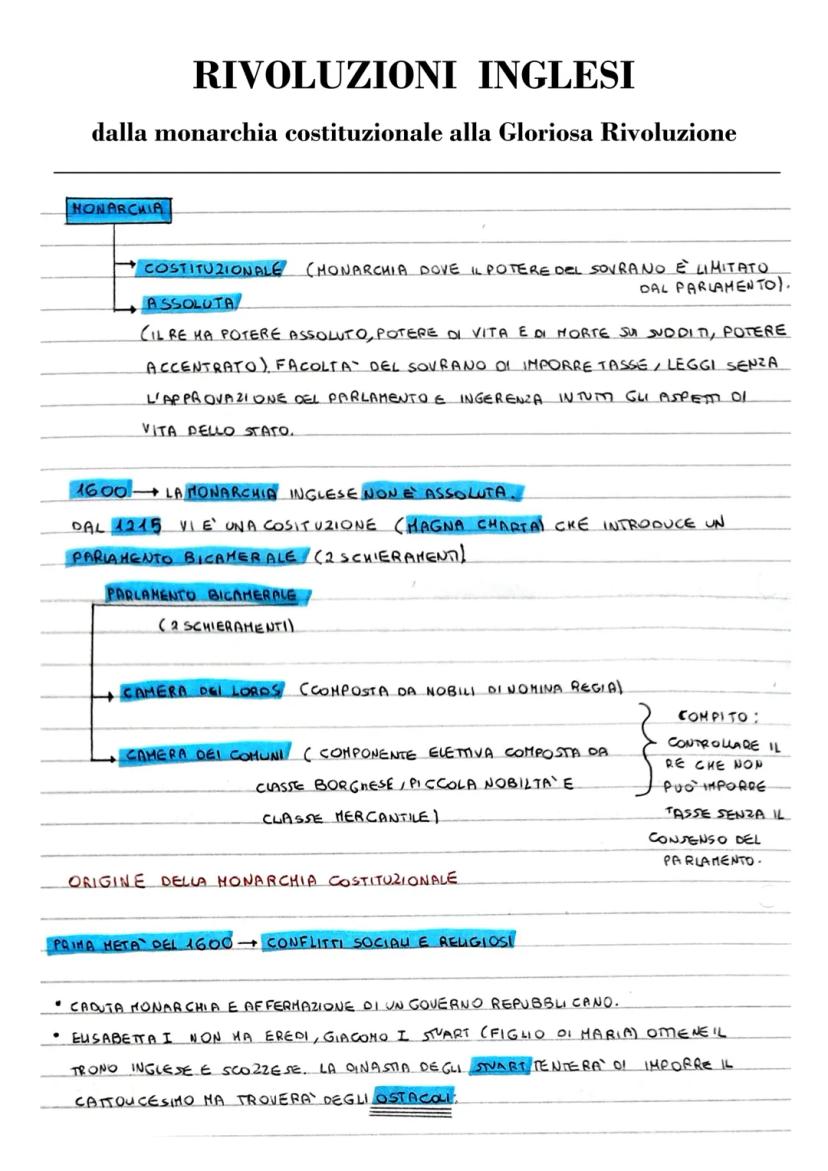 RIVOLUZIONI INGLESI
dalla monarchia costituzionale alla Gloriosa Rivoluzione
MONARCHIA
COSTITUZIONALE (MONARCHIA DOVE IL POTERE DEL SOVRANO È LIMITATO
DAL PARLAMENTO).
ASSOLUTA
(IL RE HA POTERE ASSOLUTO, POTERE DI VITA E DI MORTE SUI SUDDITI, POTERE
ACCENTRATO). FACOLTA' DEL SOVRANO DI IMPORRE TASSE, LEGGI SENZA
L'APPROVAZIONE DEL PARLAMENTO E INGERENZA IN TUTTI GLI ASPETTI DI
VITA DELLO STATO.
1600 → LA MONARCHIA INGLESE NON E' ASSOLUTA.
DAL 1215 VI E' UNA COSITUZIONE (MAGNA CHARTA) CHE INTRODUCE UN
PARLAMENTO BICAMERALE (2 SCHIERAMENTI)
PARLAMENTO BICAMERALE
(2 SCHIERAMENTI)
CAMERA DEI LORDS (COMPOSTA DA NOBILI DI NOMINA REGIA)
CAMERA DEI COMUNI (COMPONENTE ELETTIVA COMPOSTA DA
CLASSE BORGHESE, PICCOLA NOBILTA' E
CLASSE MERCANTILE)
COMPITO:
CONTROLLARE IL
RE CHE NON
PUO' IMPORRE
TASSE SENZA IL
CONSENSO DEL
PARLAMENTO.
ORIGINE DELLA MONARCHIA COSTITUZIONALE
PRIMA META' DEL 1600 → CONFLITTI SOCIALI E RELIGIOSI
• CADUTA MONARCHIA E AFFERMAZIONE DI UN GOVERNO REPUBBLICANO.
• ELISABETTA I NON HA EREDI, GIACOMO I STUART (FIGLIO DI MARIA) OTTENE IL
TRONO INGLESE E SCOZZESE. LA DINASTIA DEGLI STUART TENTERA' DI IMPORRE IL
CATTOLICESIMO MA TROVERA' DEGLI OSTACOLI.